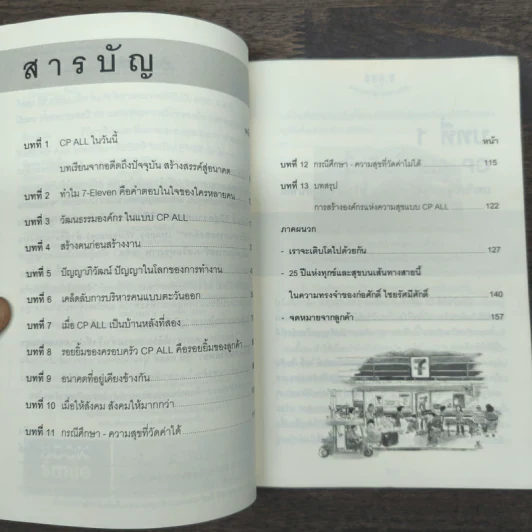 สารบัญ
บทที่ 1 CP ALL ในวันนี้
บทเรียนจากอดีตถึงปัจจุบัน สร้างสรรค์สู่อนาคต
บทที่ 2 ทำไม 7-Eleven คือคำตอบในใจของใครหลายคน
บทที่ 3 วัฒนธรรมองค์กร ในแบบ CP ALL
บทที่ 4 สร้างคนก่อนสร้างงาน
บทที่ 5 ปัญญาภิวัฒน์ ปัญญาในโลกของการทำงาน
บทที่ 6 เคล็ดลับการบริหารคนแบบตะวันออก
บทที่ 7 เมื่อ CP ALL เป็นบ้านหลังที่สอง
บทที่ 8 รอยยิ้มของครอบครัว CP ALL คือรอยยิ้มของลูกค้า
บทที่ 9 อนาคตที่อยู่เคียงข้างกัน
บทที่ 10 เมื่อให้สังคม สังคมให้มากกว่า
บทที่ 11 กรณีศึกษา - ความสุขที่วัดค่าได้
หน้า
บทที่ 12 กรณีศึกษา - ความสุขที่วัดค่าไม่ได้ 115
บทที่ 13 บทสรุป
การสร้างองค์กรแห่งความสุขแบบ CP ALL 122
ภาคผนวก
- เราจะเติบโตไปด้วยกัน 127
- 25 ปีแห่งทุกข์และสุขบนเส้นทางสายนี้
ในความทรงจำของก่อศักดิ์ ไชยรัศมีศักดิ์ 140
- จดหมายจากลูกค้า 157